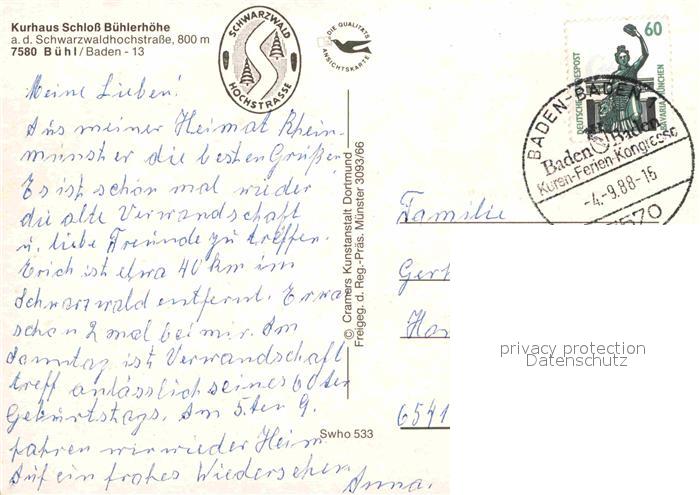 Kurhaus Schloß Bühlerhöhe
a. d. Schwarzwaldhochstraße, 800 m
7580 Bühl/Baden - 13
SCHWARZWALD
HOCHSTRASSE
DIE QUALITÄTS
ANSICHTSKARTE
Meine Lieben!
Aus meiner Heimat Rhein-
münster die besten Grüße.
Es ist schön mal wieder
die alte Verwandschaft
u. liebe Freunde zu treffen.
Erich ist etwa 40 km im
Schwarzwald entfernt. Er war
schon 2 mal bei mir. Am
Samstag ist Verwandschaft
treff anlässlich seines 60ten
Geburtstags. Am 5.ten 9.
fahren wir wieder Heim.
Auf ein frohes Wiedersehen
Anna.
© Cramers Kunstanstalt Dortmund
Freigeg. d. Reg.-Präs. Münster 3093/66
Swho 533
60
DEUTSCHE BUNDESPOST
BAVARIA MÜNCHEN
BADEN-BADEN
Baden Baden
Kuren-Ferien-Kongresse
-4.-9.88-15
7570
Familie
Ger
Ha
6541
privacy protection
Datenschutz